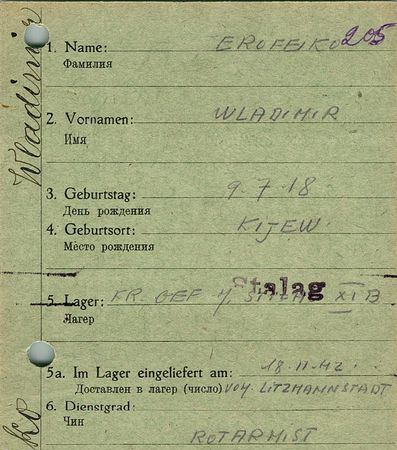 205
1. Name: EROFEIKO
Фамилия
2. Vornamen: WLADIMIR
Имя
3. Geburtstag: 9.7.18
День рождения
4. Geburtsort: KIJEW.
Место рождения
Stalag
5. Lager: KR. GEF. XI B
Лагер
5a. Im Lager eingeliefert am: 18.11.42.
Доставлен в лагер (число) VOM LITZMANNSTADT
6. Dienstgrad:
Чин
ROTARMIST
Wladimir
ko